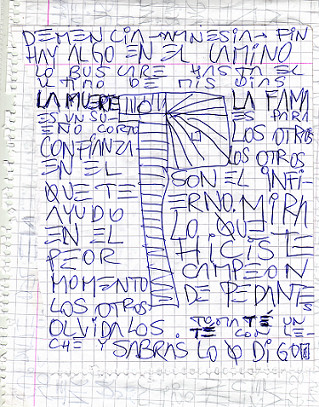 DEMENCIA - AMNESIA - FIN
HAY ALGO EN EL CAMINO
LO BUSCARE HASTA EL
ULTIMO DE MIS DIAS
LA MUERE
ES UN SU
EÑO CORTO
CONFIANZA
EN EL
QUE TE
AYUDO
EN EL
PEOR
MOMENTO
LOS OTROS
OLVIDALOS.
LA FAMA
ES PARA
LOS OTROS
LOS OTROS
SON EL INFI
ERNO. MIRA
LO QUE
HICISTE
CAMPEON
DE PEDANTE
S
TOMATÉ UN
TE CON LE-
CHE Y SABRAS LO Q DIGO